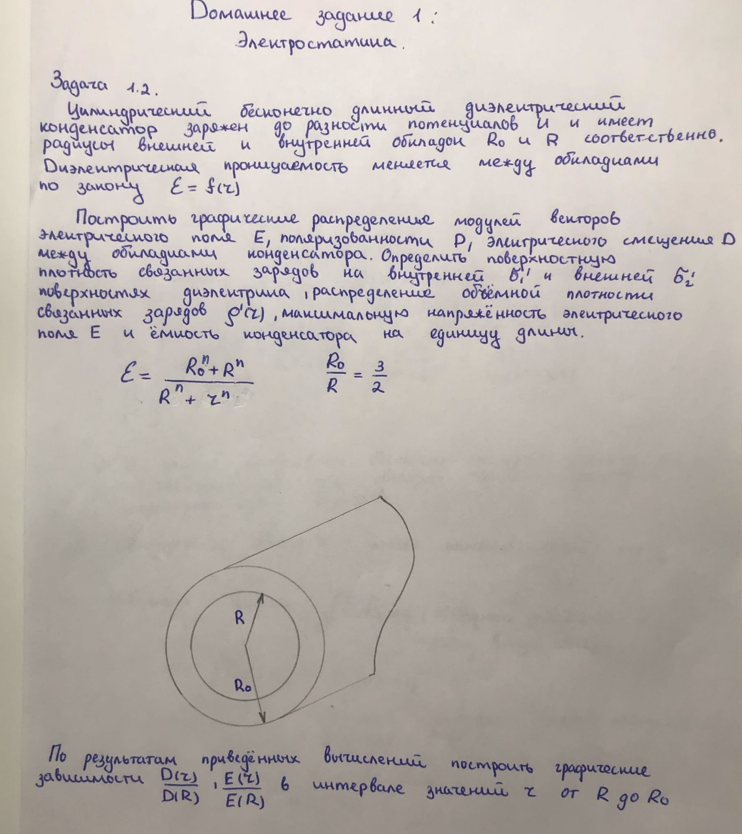 Домашнее задание 1:
Электростатика.
Задача 1.2.
Цилиндрический бесконечно длинный диэлектрический
конденсатор заряжен до разности потенциалов U и имеет
радиусы внешней и внутренней обкладок R₀ и R соответственно.
Диэлектрическая проницаемость меняется между обкладками
по закону Ɛ = f(r)
Построить графические распределение модулей векторов
электрического поля E, поляризованности P, электрического смещения D
между обкладками конденсатора. Определить поверхностную
плотность связанных зарядов на внутренней σ₁' и внешней σ₂'
поверхностях диэлектрика, распределение объёмной плотности
связанных зарядов ρ'(r), максимальную напряжённость электрического
поля E и ёмкость конденсатора на единицу длины.
Ɛ = (R₀ⁿ + Rⁿ) / (Rⁿ + rⁿ)   R₀/R = 3/2
R
R₀
По результатам приведённых вычислений построить графические
зависимости D(r)/D(R), E(r)/E(R) в интервале значений r от R до R₀